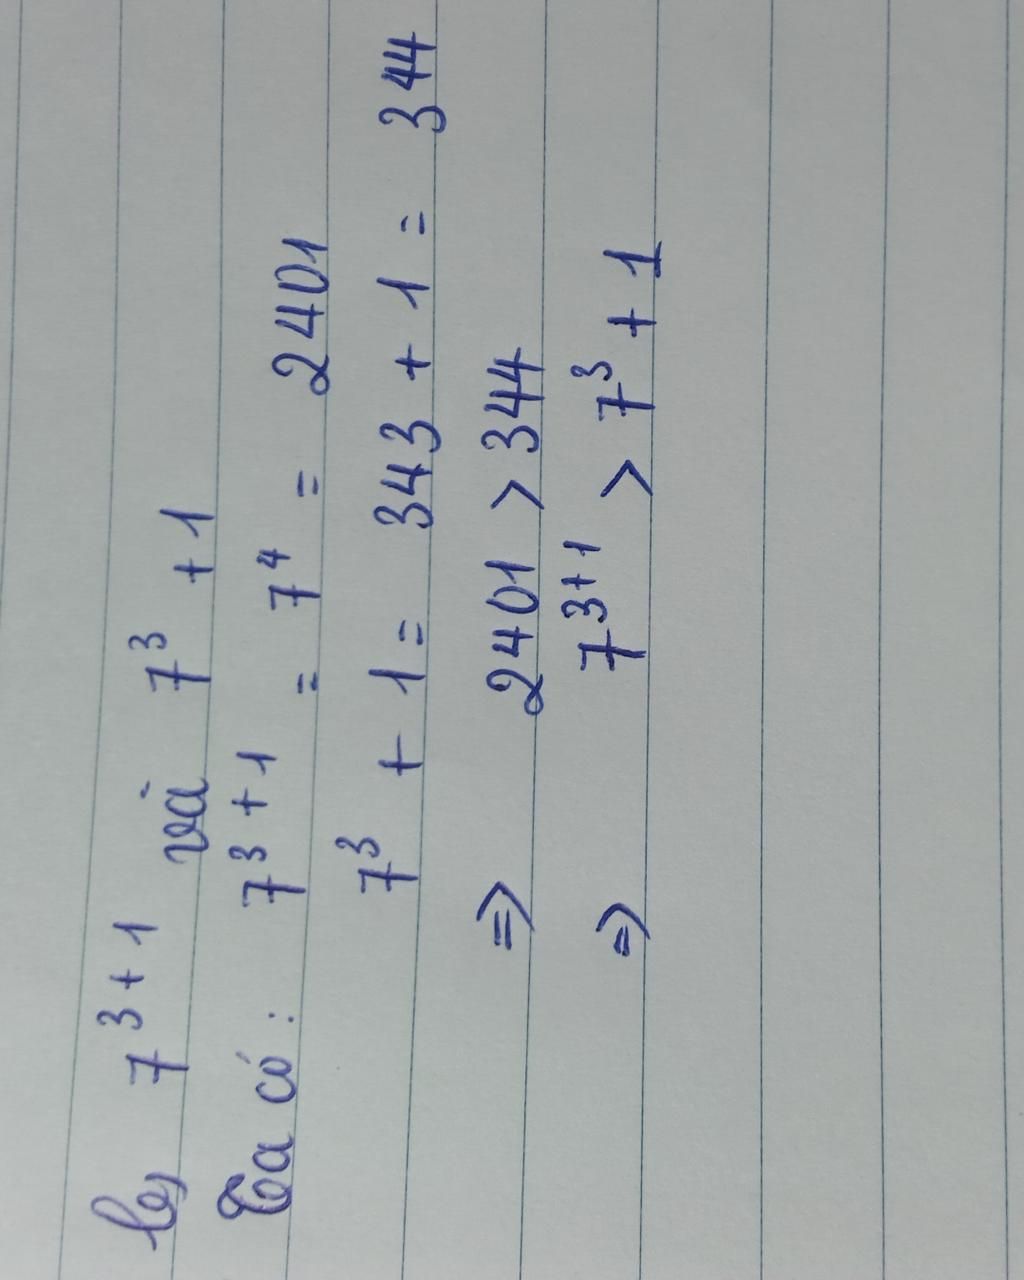 b, 7³⁺¹ và 7³ + 1
Ta có: 7³⁺¹ = 7⁴ = 2401
7³ + 1 = 343 + 1 = 344
=> 2401 > 344
=> 7³⁺¹ > 7³ + 1